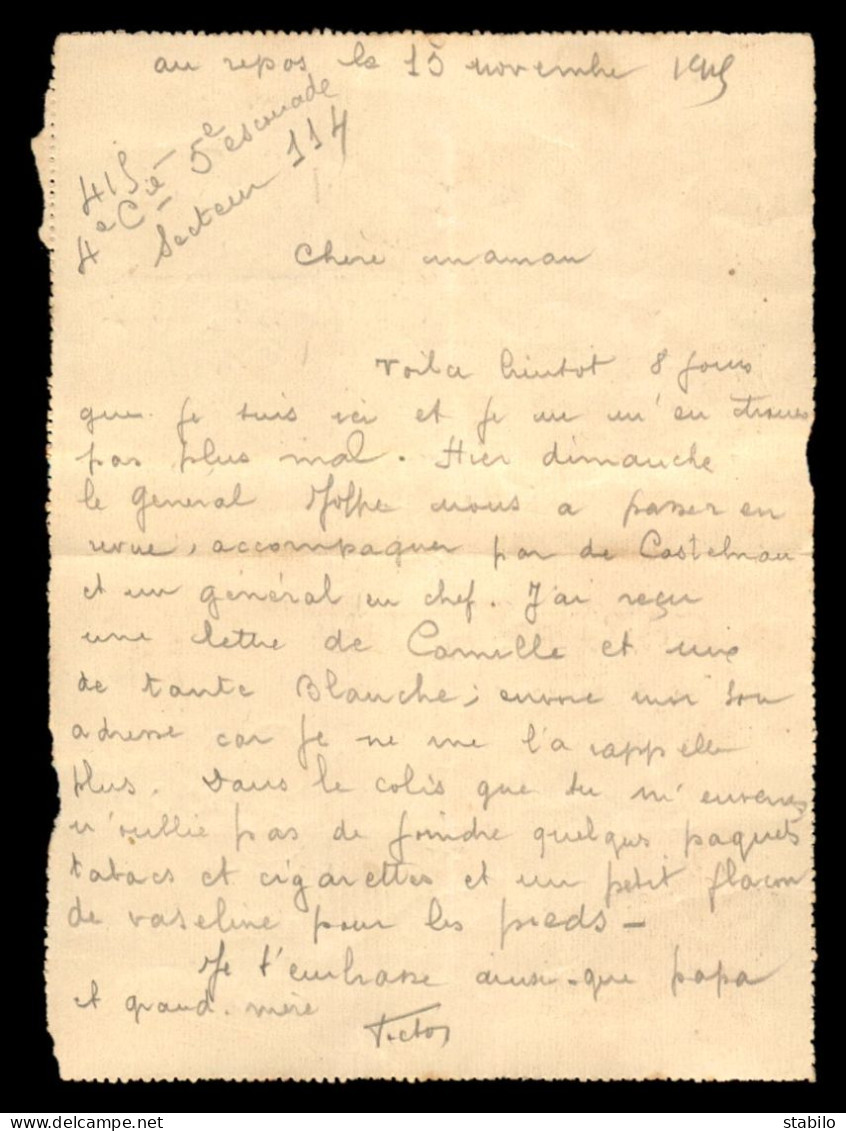 au repos le 15 novembre 1915
415
4e Cie 5e escouade
Secteur 114
Chère maman
Voila bientot 8 jours
que je suis ici et je ne m'en trouve
pas plus mal. Hier dimanche
le général Joffre nous a passer en
revue, accompagner par de Castelnau
et un général en chef. J'ai reçu
une lettre de Camille et une
de tante Blanche; envoie moi son
adresse car je ne me l'a rappelle
plus. Dans le colis que tu m'enverras
n'oublie pas de joindre quelques paquets
tabacs et cigarettes et un petit flacon
de vaseline pour les pieds -
Je t'embrasse ainsi-que papa
et grand. mère
Victor
delcampe.net
stabilo